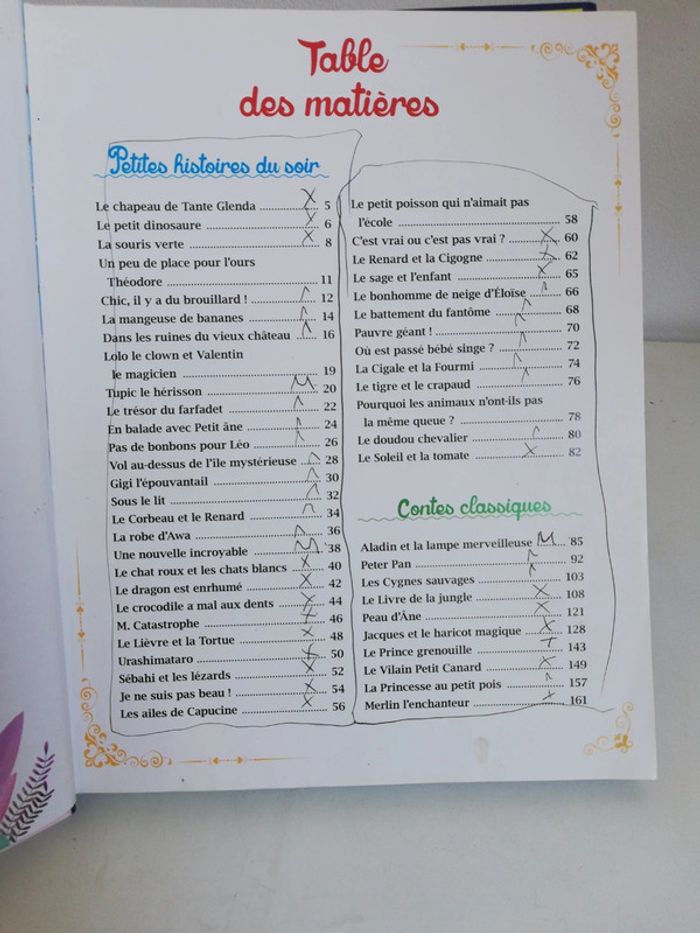 Table
des matières
Petites histoires du soir
Le chapeau de Tante Glenda ........ 5
Le petit dinosaure ........ 6
La souris verte ........ 8
Un peu de place pour l'ours
Théodore ........ 11
Chic, il y a du brouillard ! ........ 12
La mangeuse de bananes ........ 14
Dans les ruines du vieux château ........ 16
Lolo le clown et Valentin
le magicien ........ 19
Tupic le hérisson ........ 20
Le trésor du farfadet ........ 22
En balade avec Petit âne ........ 24
Pas de bonbons pour Léo ........ 26
Vol au-dessus de l'île mystérieuse ........ 28
Gigi l'épouvantail ........ 30
Sous le lit ........ 32
Le Corbeau et le Renard ........ 34
La robe d'Awa ........ 36
Une nouvelle incroyable ........ 38
Le chat roux et les chats blancs ........ 40
Le dragon est enrhumé ........ 42
Le crocodile a mal aux dents ........ 44
M. Catastrophe ........ 46
Le Lièvre et la Tortue ........ 48
Urashimataro ........ 50
Sébahi et les lézards ........ 52
Je ne suis pas beau ! ........ 54
Les ailes de Capucine ........ 56
Le petit poisson qui n'aimait pas
l'école ........ 58
C'est vrai ou c'est pas vrai ? ........ 60
Le Renard et la Cigogne ........ 62
Le sage et l'enfant ........ 65
Le bonhomme de neige d'Éloïse ........ 66
Le battement du fantôme ........ 68
Pauvre géant ! ........ 70
Où est passé bébé singe ? ........ 72
La Cigale et la Fourmi ........ 74
Le tigre et le crapaud ........ 76
Pourquoi les animaux n'ont-ils pas
la même queue ? ........ 78
Le doudou chevalier ........ 80
Le Soleil et la tomate ........ 82
Contes classiques
Aladin et la lampe merveilleuse ........ 85
Peter Pan ........ 92
Les Cygnes sauvages ........ 103
Le Livre de la jungle ........ 108
Peau d'Âne ........ 121
Jacques et le haricot magique ........ 128
Le Prince grenouille ........ 143
Le Vilain Petit Canard ........ 149
La Princesse au petit pois ........ 157
Merlin l'enchanteur ........ 161